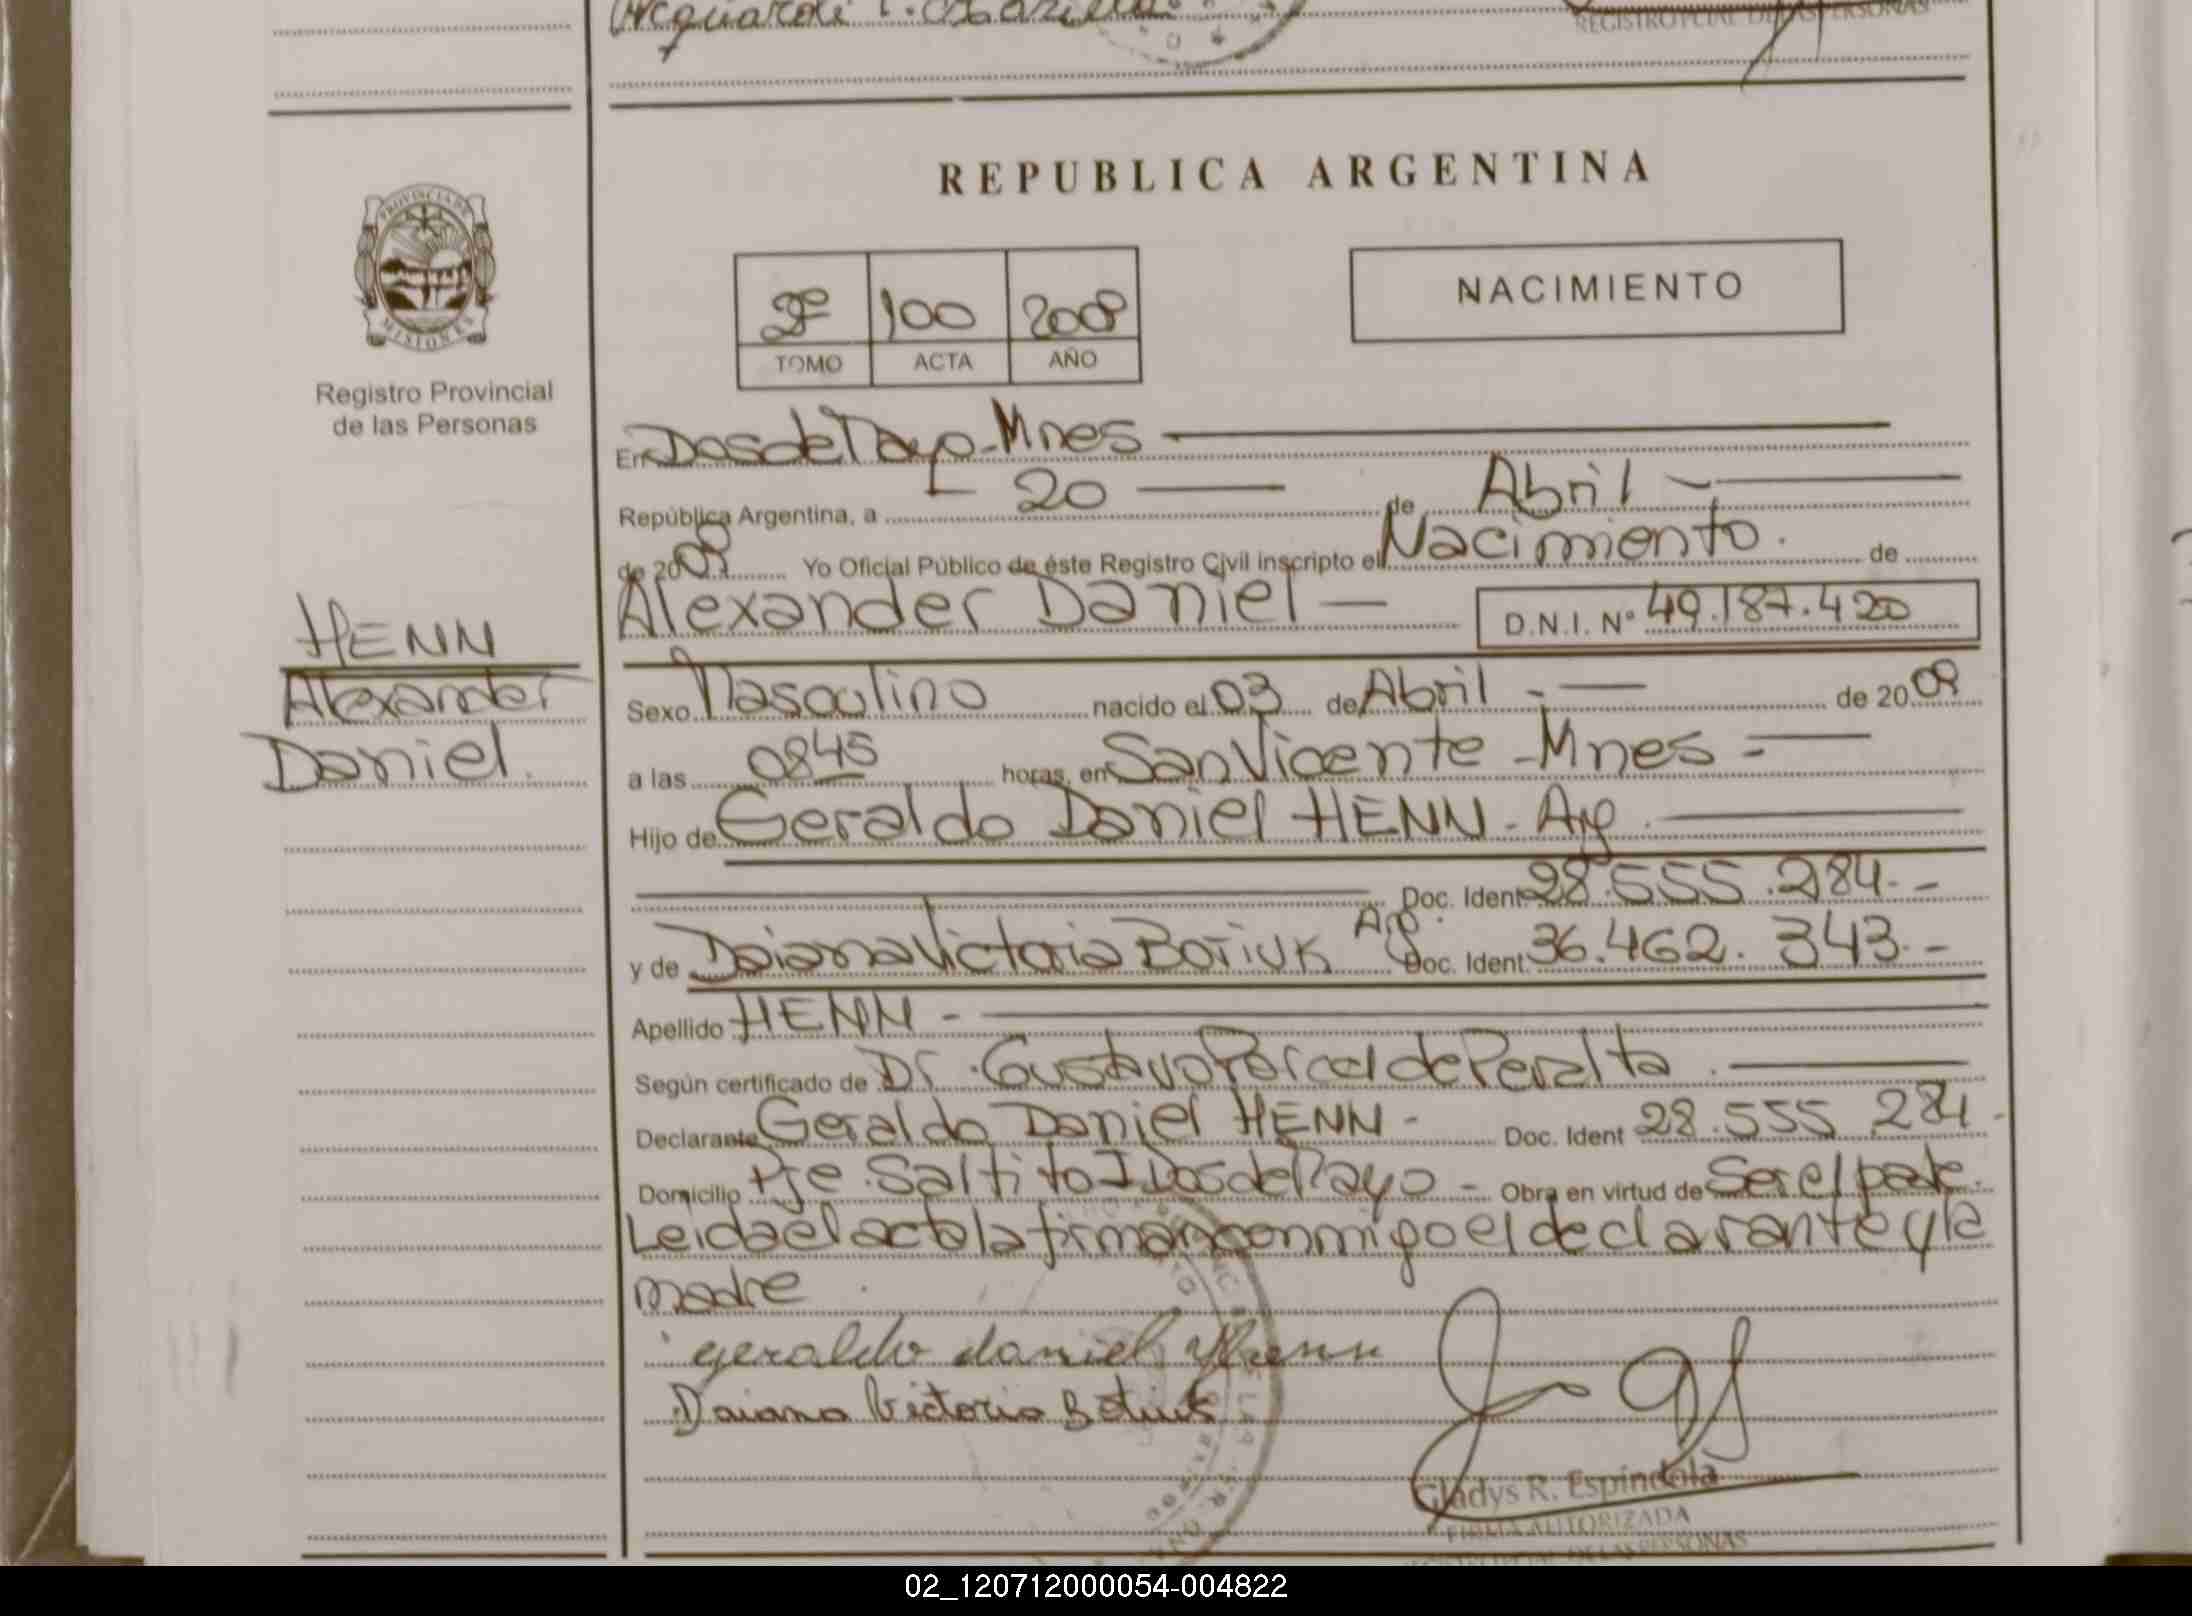 REGISTRO PCIAL DE LAS PERSONAS
PROVINCIA DE
MISIONES
Registro Provincial
de las Personas
HENN
Alexander
Daniel.
REPUBLICA ARGENTINA
2º 100 2009
TOMO ACTA AÑO
NACIMIENTO
En Dos de Mayo - Mnes
República Argentina, a 20 de Abril
de 2009 Yo Oficial Público de éste Registro Civil inscripto el Nacimiento. de
Alexander Daniel — D.N.I. Nº 49.187.420
Sexo Masculino nacido el 03 de Abril - de 2009
a las 0845 horas, en San Vicente - Mnes =
Hijo de Geraldo Daniel HENN - Arg.
Doc. Ident. 28.555.284.-
y de Daiana Victoria BOTIUK Arg. Doc. Ident. 36.462.343.-
Apellido HENN -
Según certificado de Dr. Gustavo Porcel de Peralta.
Declarante Geraldo Daniel HENN - Doc. Ident 28.555 284 -
Domicilio Pje. Saltito I Dos de Mayo - Obra en virtud de Ser el padre.
Leida el acta la firman conmigo el declarante y la
madre.
geraldo daniel Henn
Daiana Victoria Botiuk
Gladys R. Espindola
FIRMA AUTORIZADA
REGISTRO PCIAL. DE LAS PERSONAS
02_120712000054-004822